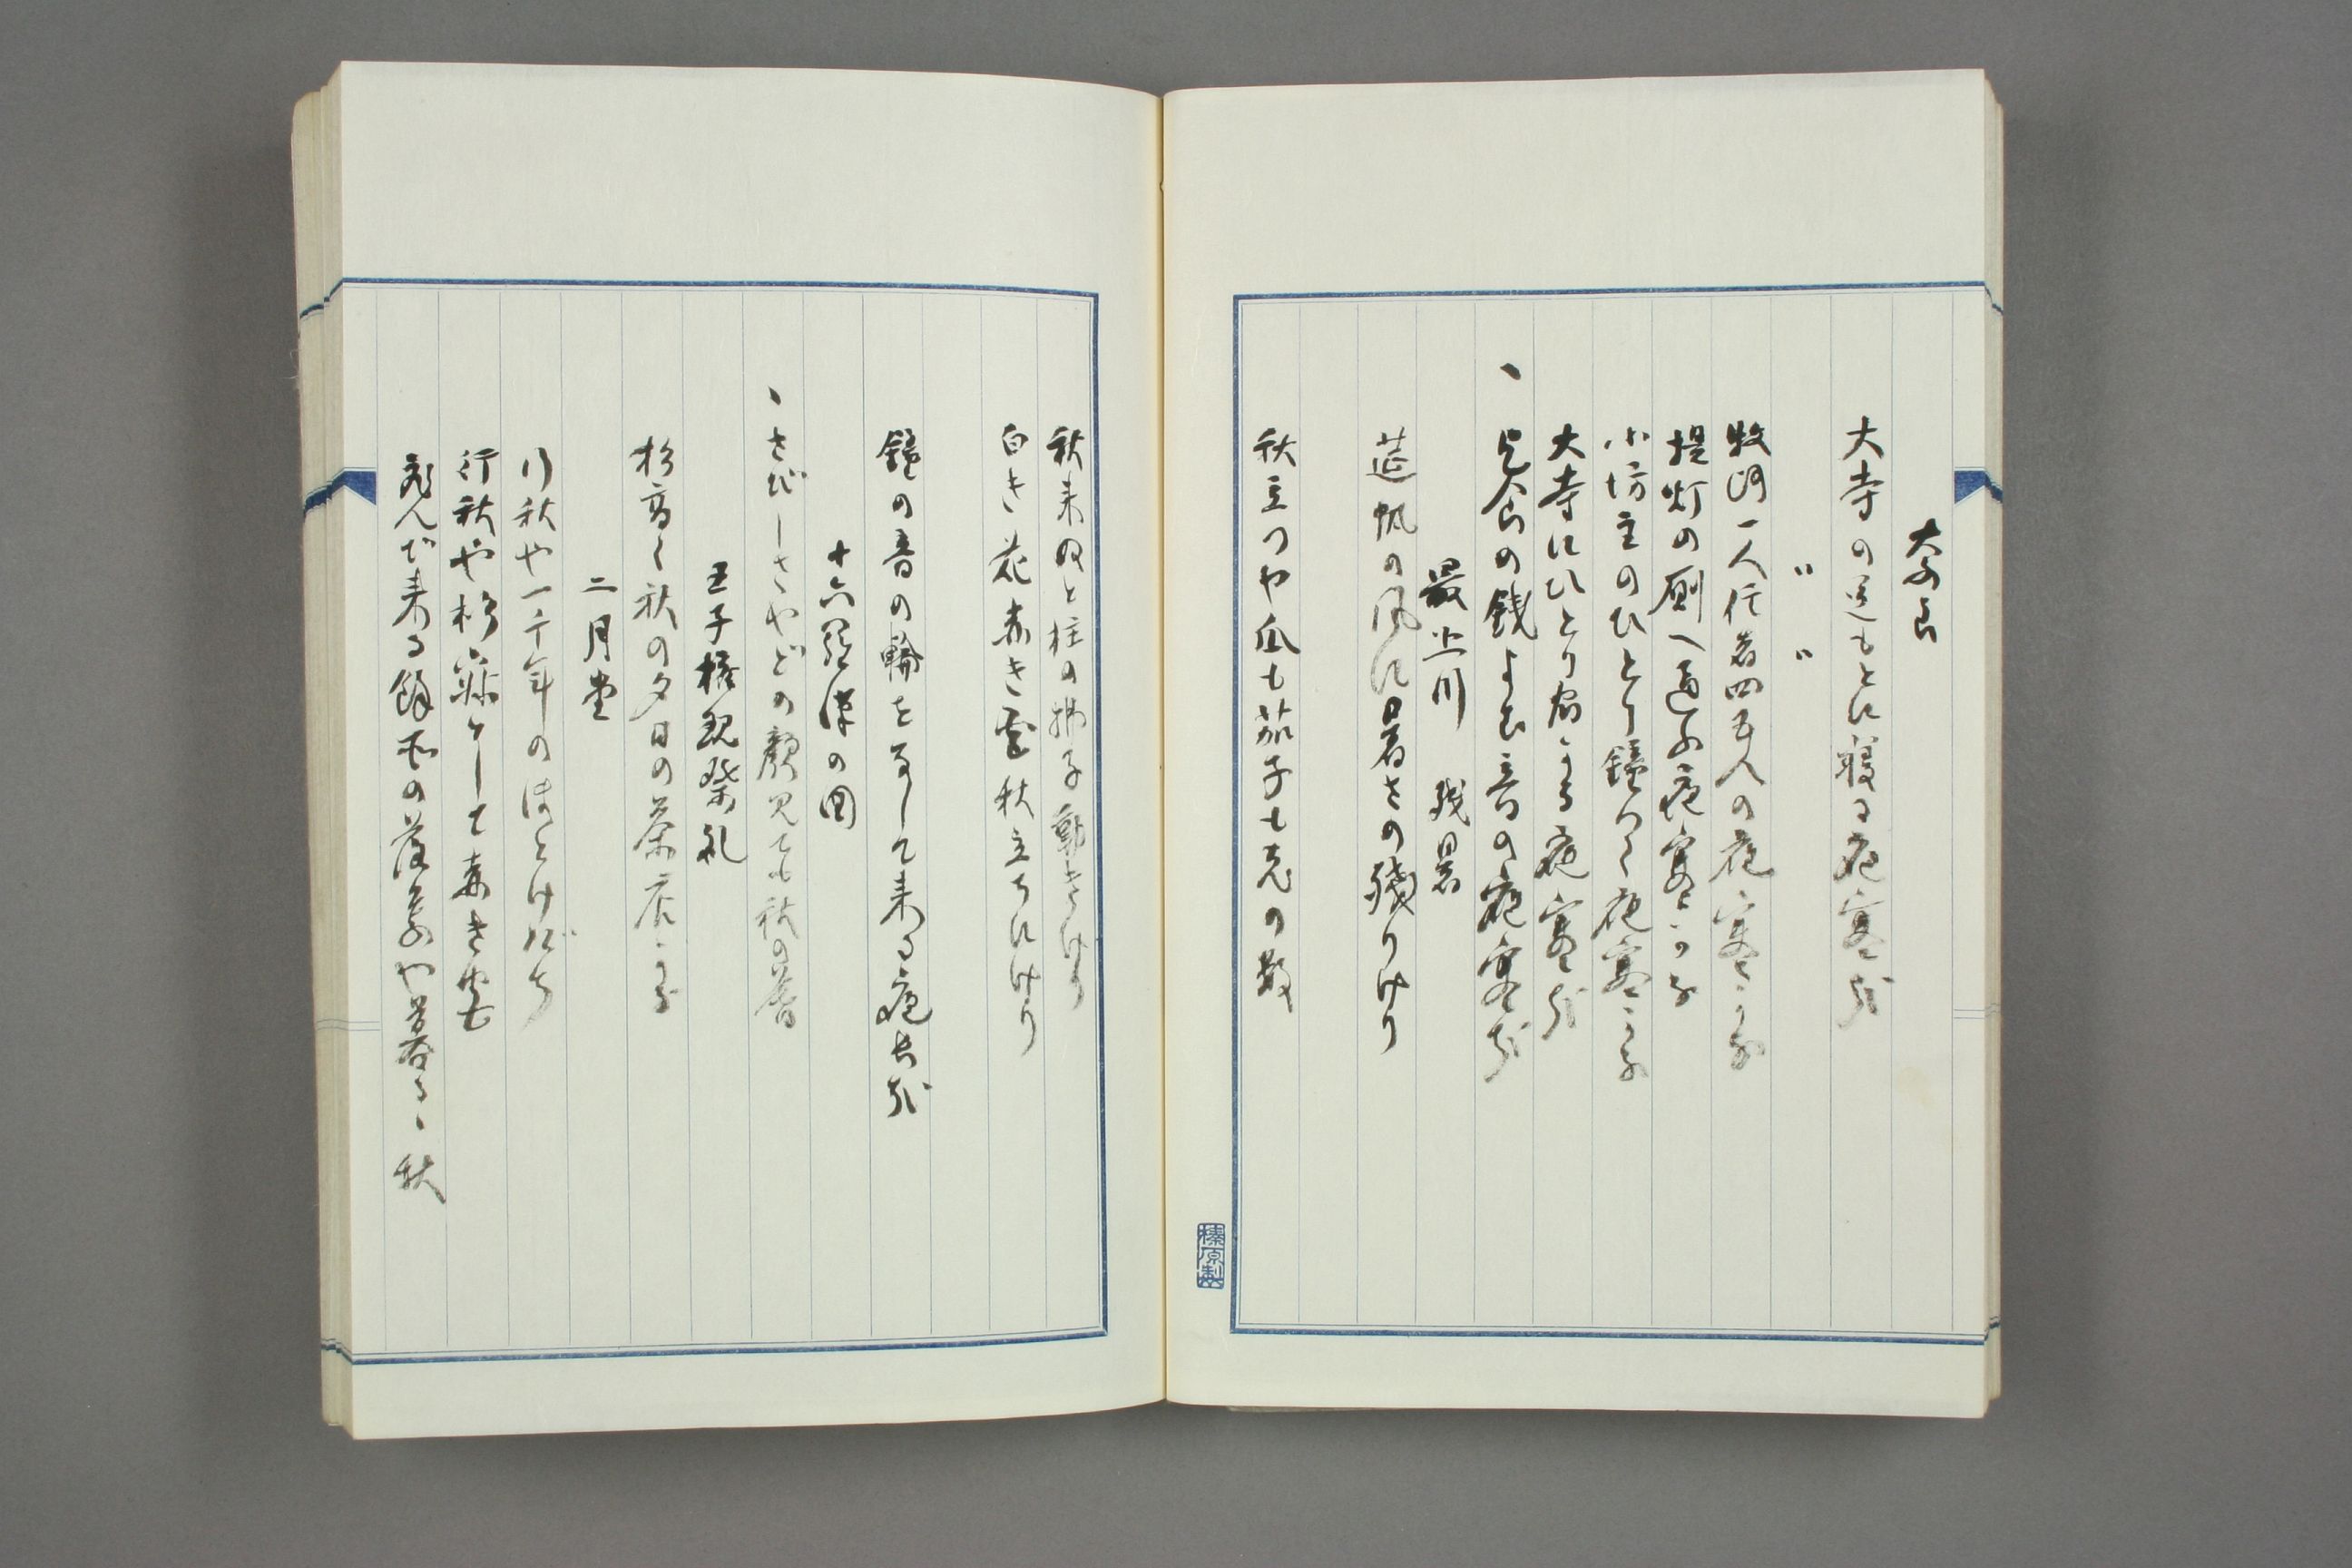 大仏
大寺の辺もとに寝る夜寒哉
〃 〃
牧師一人信者四五人の夜寒かな
提灯の厠へ通ふ夜寒かな
小坊主のひとり鐘つく夜寒かな
大寺にひとり宿かる夜寒哉
、乞食の銭よむ音の夜寒哉
最上川 残暑
莚帆の風に暑さの残りけり
秋立つや瓜も茄子も老の数
榛原製
秋来ぬと柱の払子動きけり
白き花赤き雲秋立ちにけり
鐘の音の輪をなして来る夜長哉
十六羅漢の図
、さびしさやどの顔見ても秋の暮
王子権現祭礼
杉高く秋の夕日の茶店かな
二月堂
行秋や一千年のほとけだち
行秋や杉
飛んで来る餅の落葉や暮るゝ秋